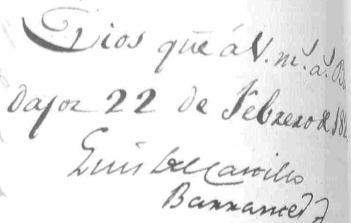 Dios gue á V. m.s a.s Ba
dajoz 22 de Febrero de 18
Luis del Castillo